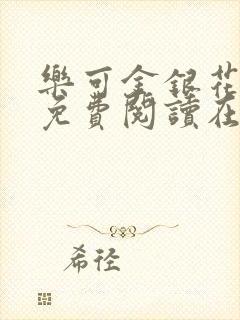 樂可金銀花
免費閱讀在
希徑